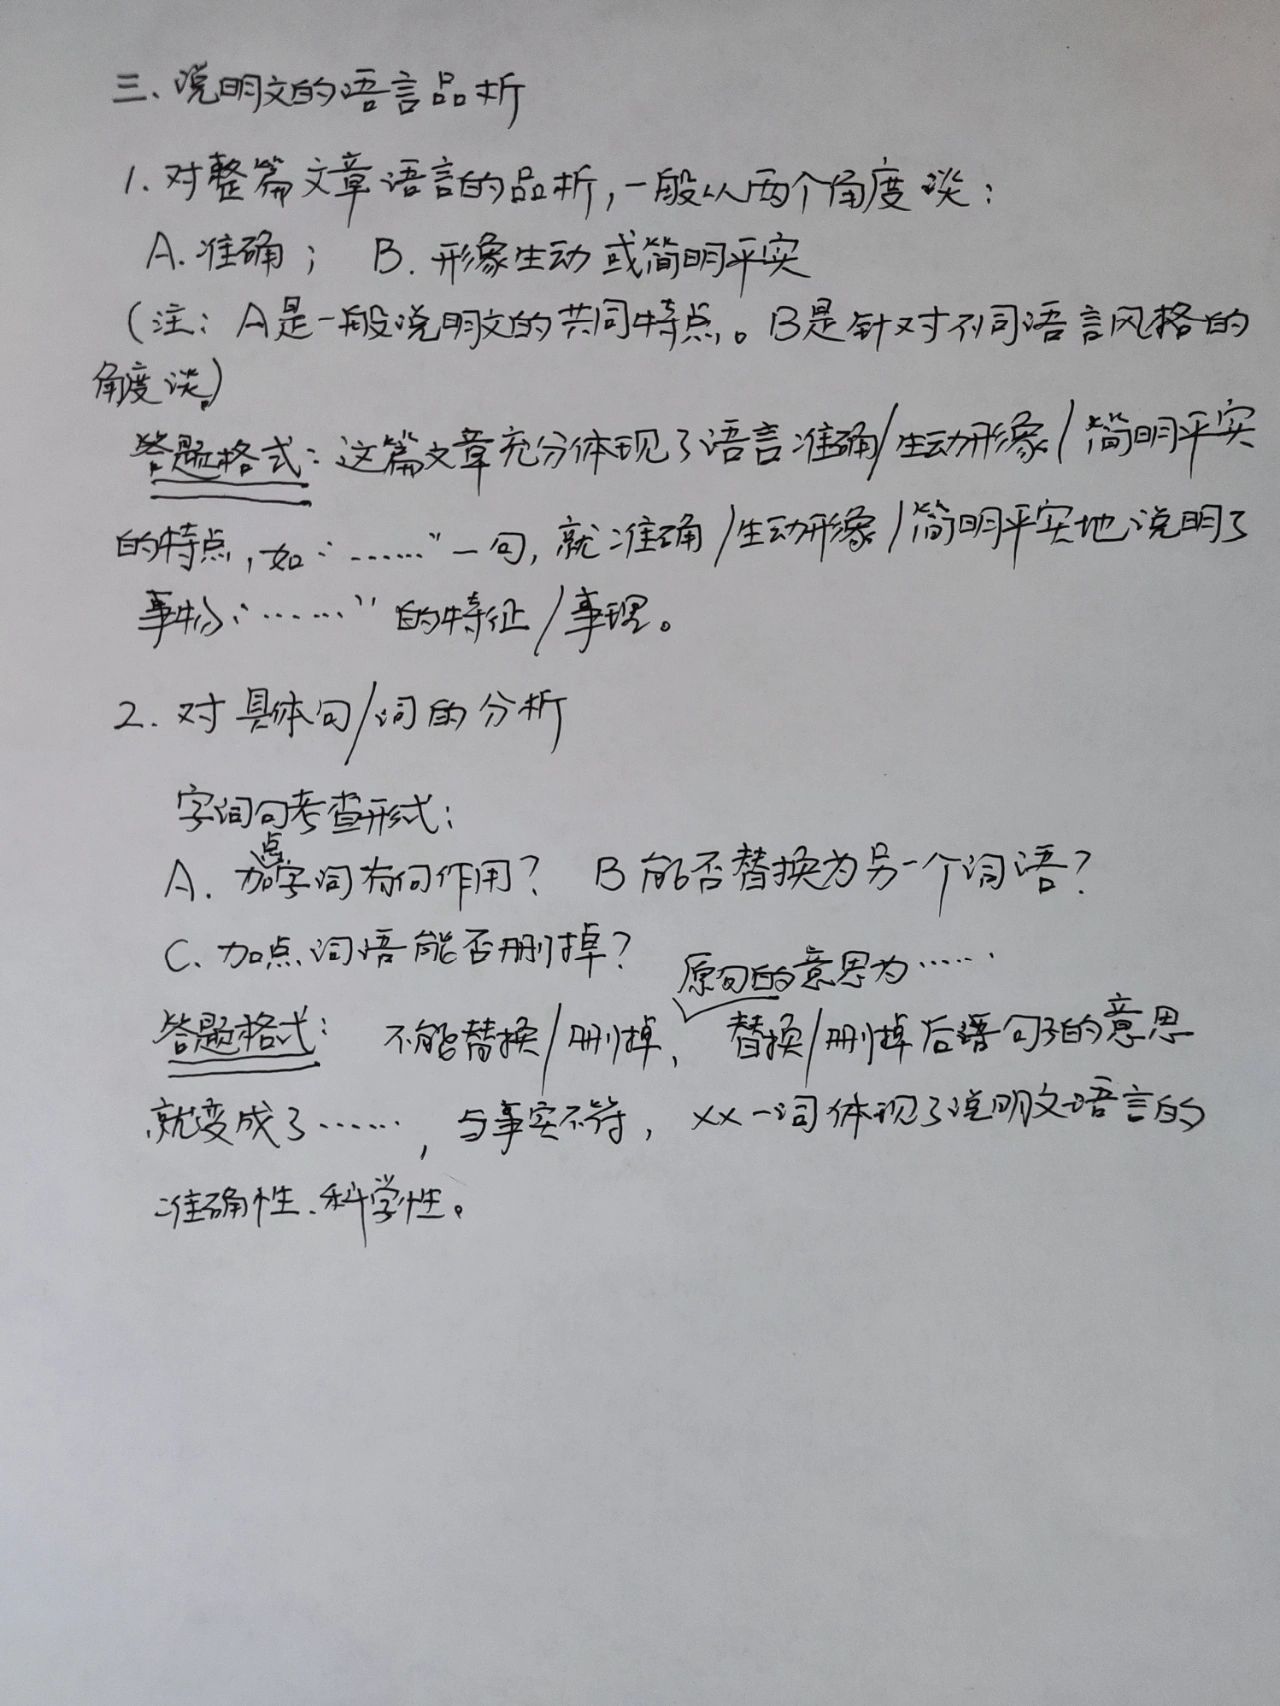 三、说明文的语言品析
1. 对整篇文章语言的品析，一般从两个角度谈：
A. 准确； B. 形象生动或简明平实
（注：A是一般说明文的共同特点。B是针对不同语言风格的
角度谈。）
答题格式：这篇文章充分体现了语言准确/生动形象/简明平实
的特点，如“……”一句，就准确/生动形象/简明平实地说明了
事物“……”的特征/事理。
2. 对具体句/词的分析
字词句考查形式：
A. 加点字词有何作用？ B 能否替换为另一个词语？
C. 加点词语能否删掉？
原句的意思为……
答题格式： 不能替换/删掉， 替换/删掉后语句子的意思
就变成了……，与事实不符，xx一词体现了说明文语言的
准确性、科学性。